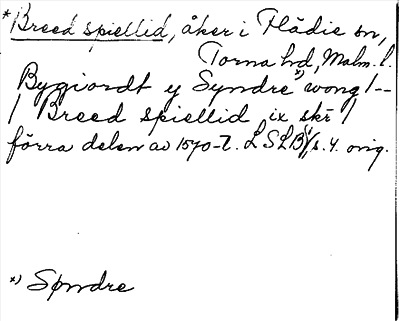 *Breed spiellid, åker i Flädie sn,
Torna hd, Malm. l.
Bygiordt y Syndre*) wong /--
/ Breed spiellid ix skr /
förra delen av 1570-t. LSLB 1/s. 4. orig.
*) Søndre